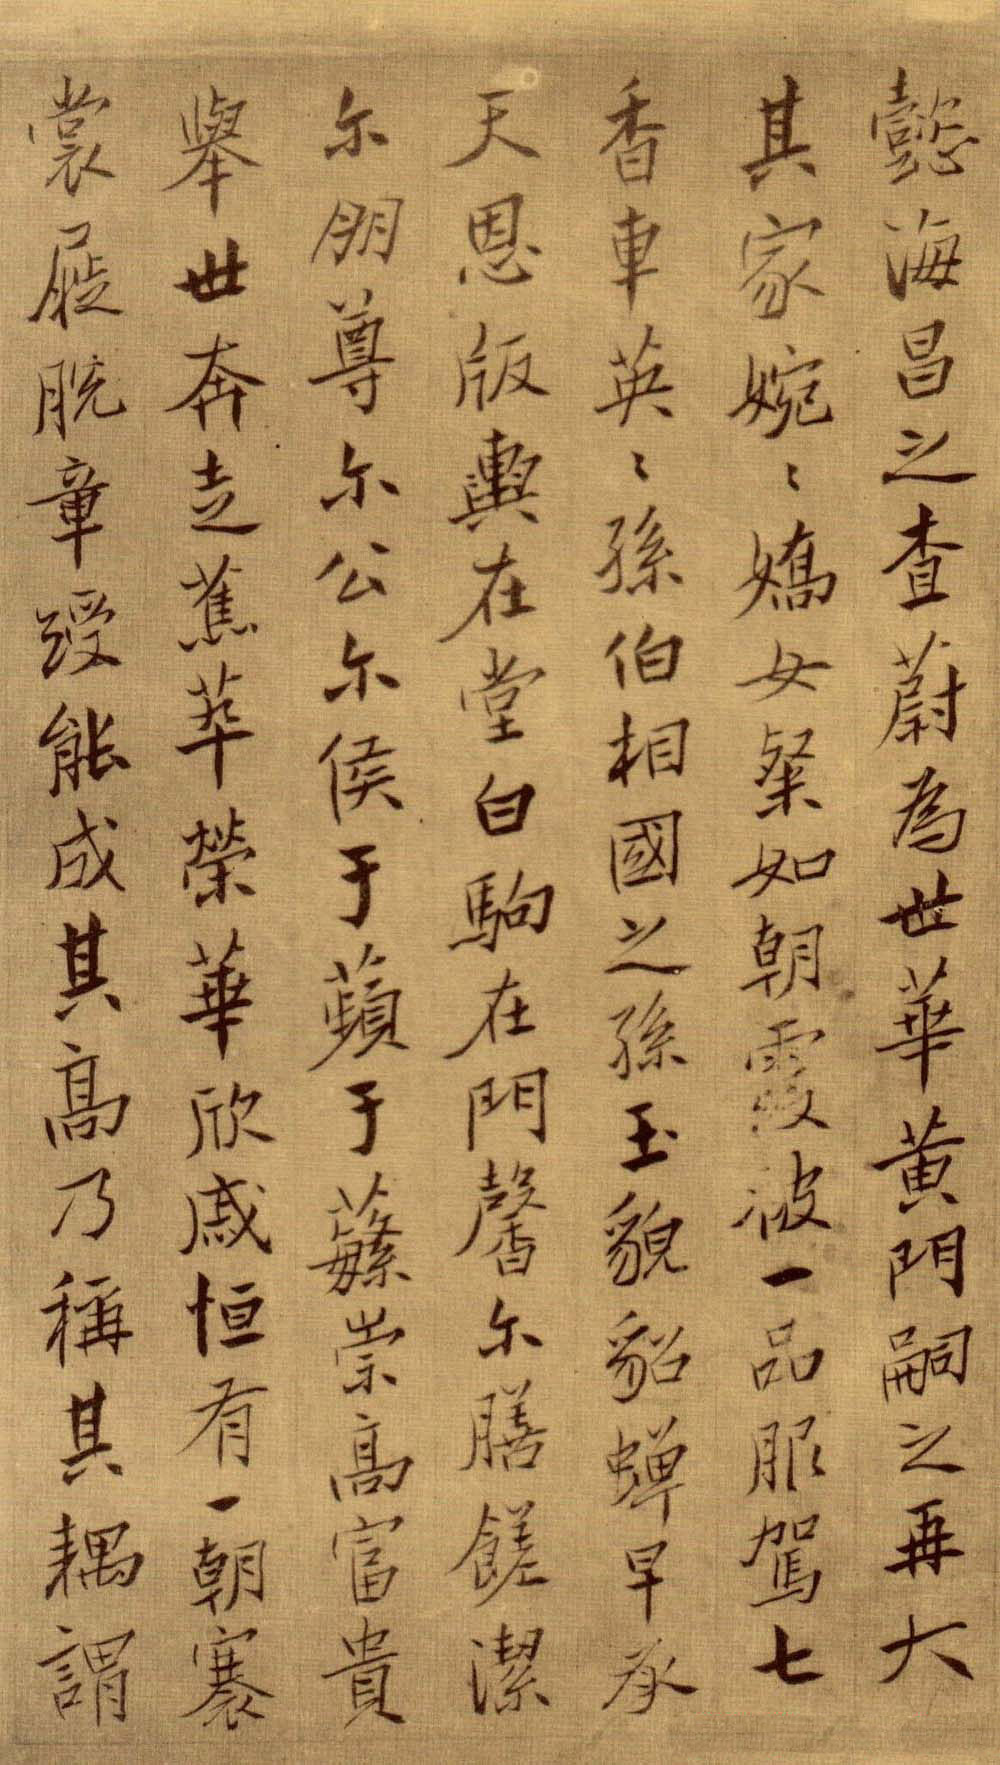 懿海昌之查蔚為世華黃門嗣之再大
其家婉〻嬌女粲如朝霞被一品服駕七
香車英〻孫伯相國之孫玉貌貂蟬早承
天恩版輿在堂白駒在門馨尔膳饈潔
尔朋尊尔公尔侯于蘋于蘩崇高富貴
舉世奔走蕉萃榮華欣戚恒有一朝褰
裳屣脫章綬能成其高乃稱其耦謂